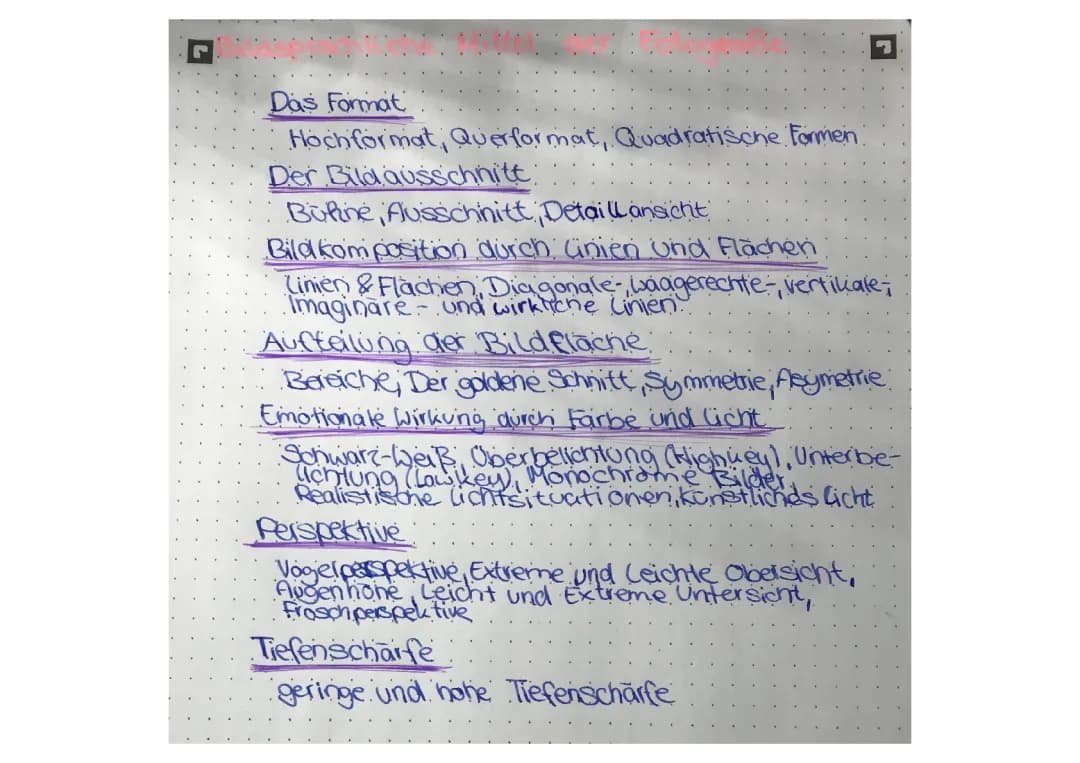 Bildsprachliche Mittel der Fotografie
Das Format
Hochformat, Querformat, Quadratische Formen
Der Bildausschnitt
Bühne, Ausschnitt, Detaillansicht
Bildkomposition durch Linien und Flächen
Linien & Flächen, Diagonale-, waagerechte-, vertikale-,
Imaginäre- und wirkliche Linien
Aufteilung der Bildfläche
Bereiche, Der goldene Schnitt, Symmetrie, Asymetrie
Emotionale Wirkung durch Farbe und Licht
Schwarz-Weiß, Überbelichtung (Highkey), Unterbe-
lichtung (Lowkey), Monochrome Bilder,
Realistische Lichtsituationen, künstlichds Licht
Perspektive
Vogelperspektive, Extreme und Leichte Obersicht,
Augenhöhe, Leicht und Extreme Untersicht,
Froschperspektive
Tiefenschärfe
geringe und hohe Tiefenschärfe